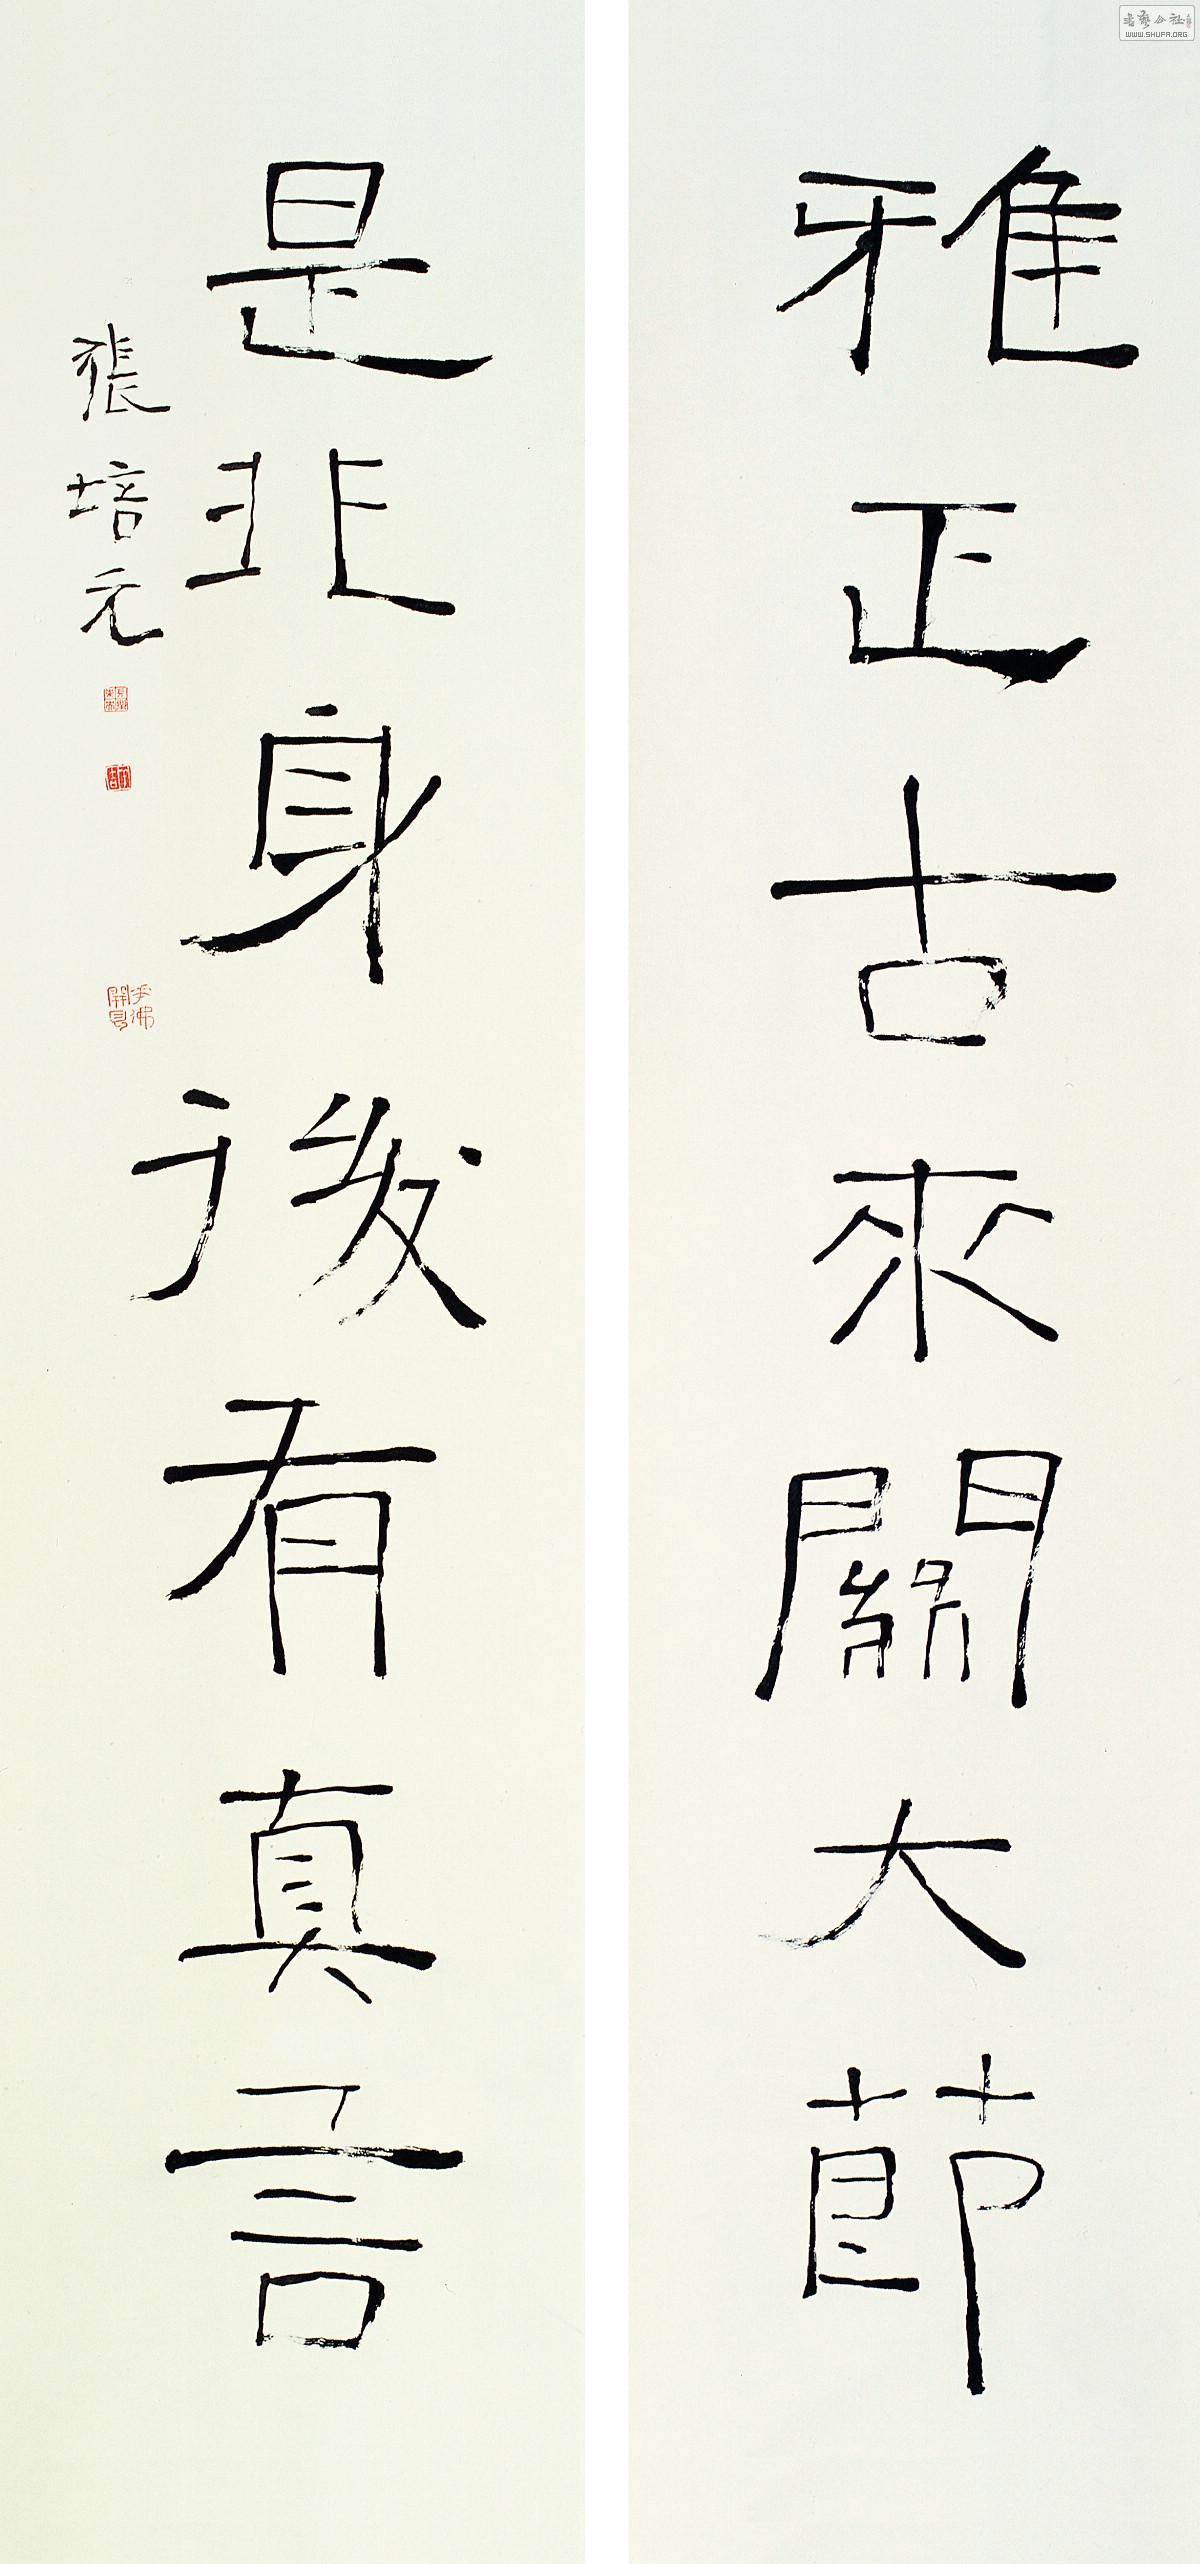 雅正古來關大節
是非身後有真言
張培元
WWW.SHUFA.ORG